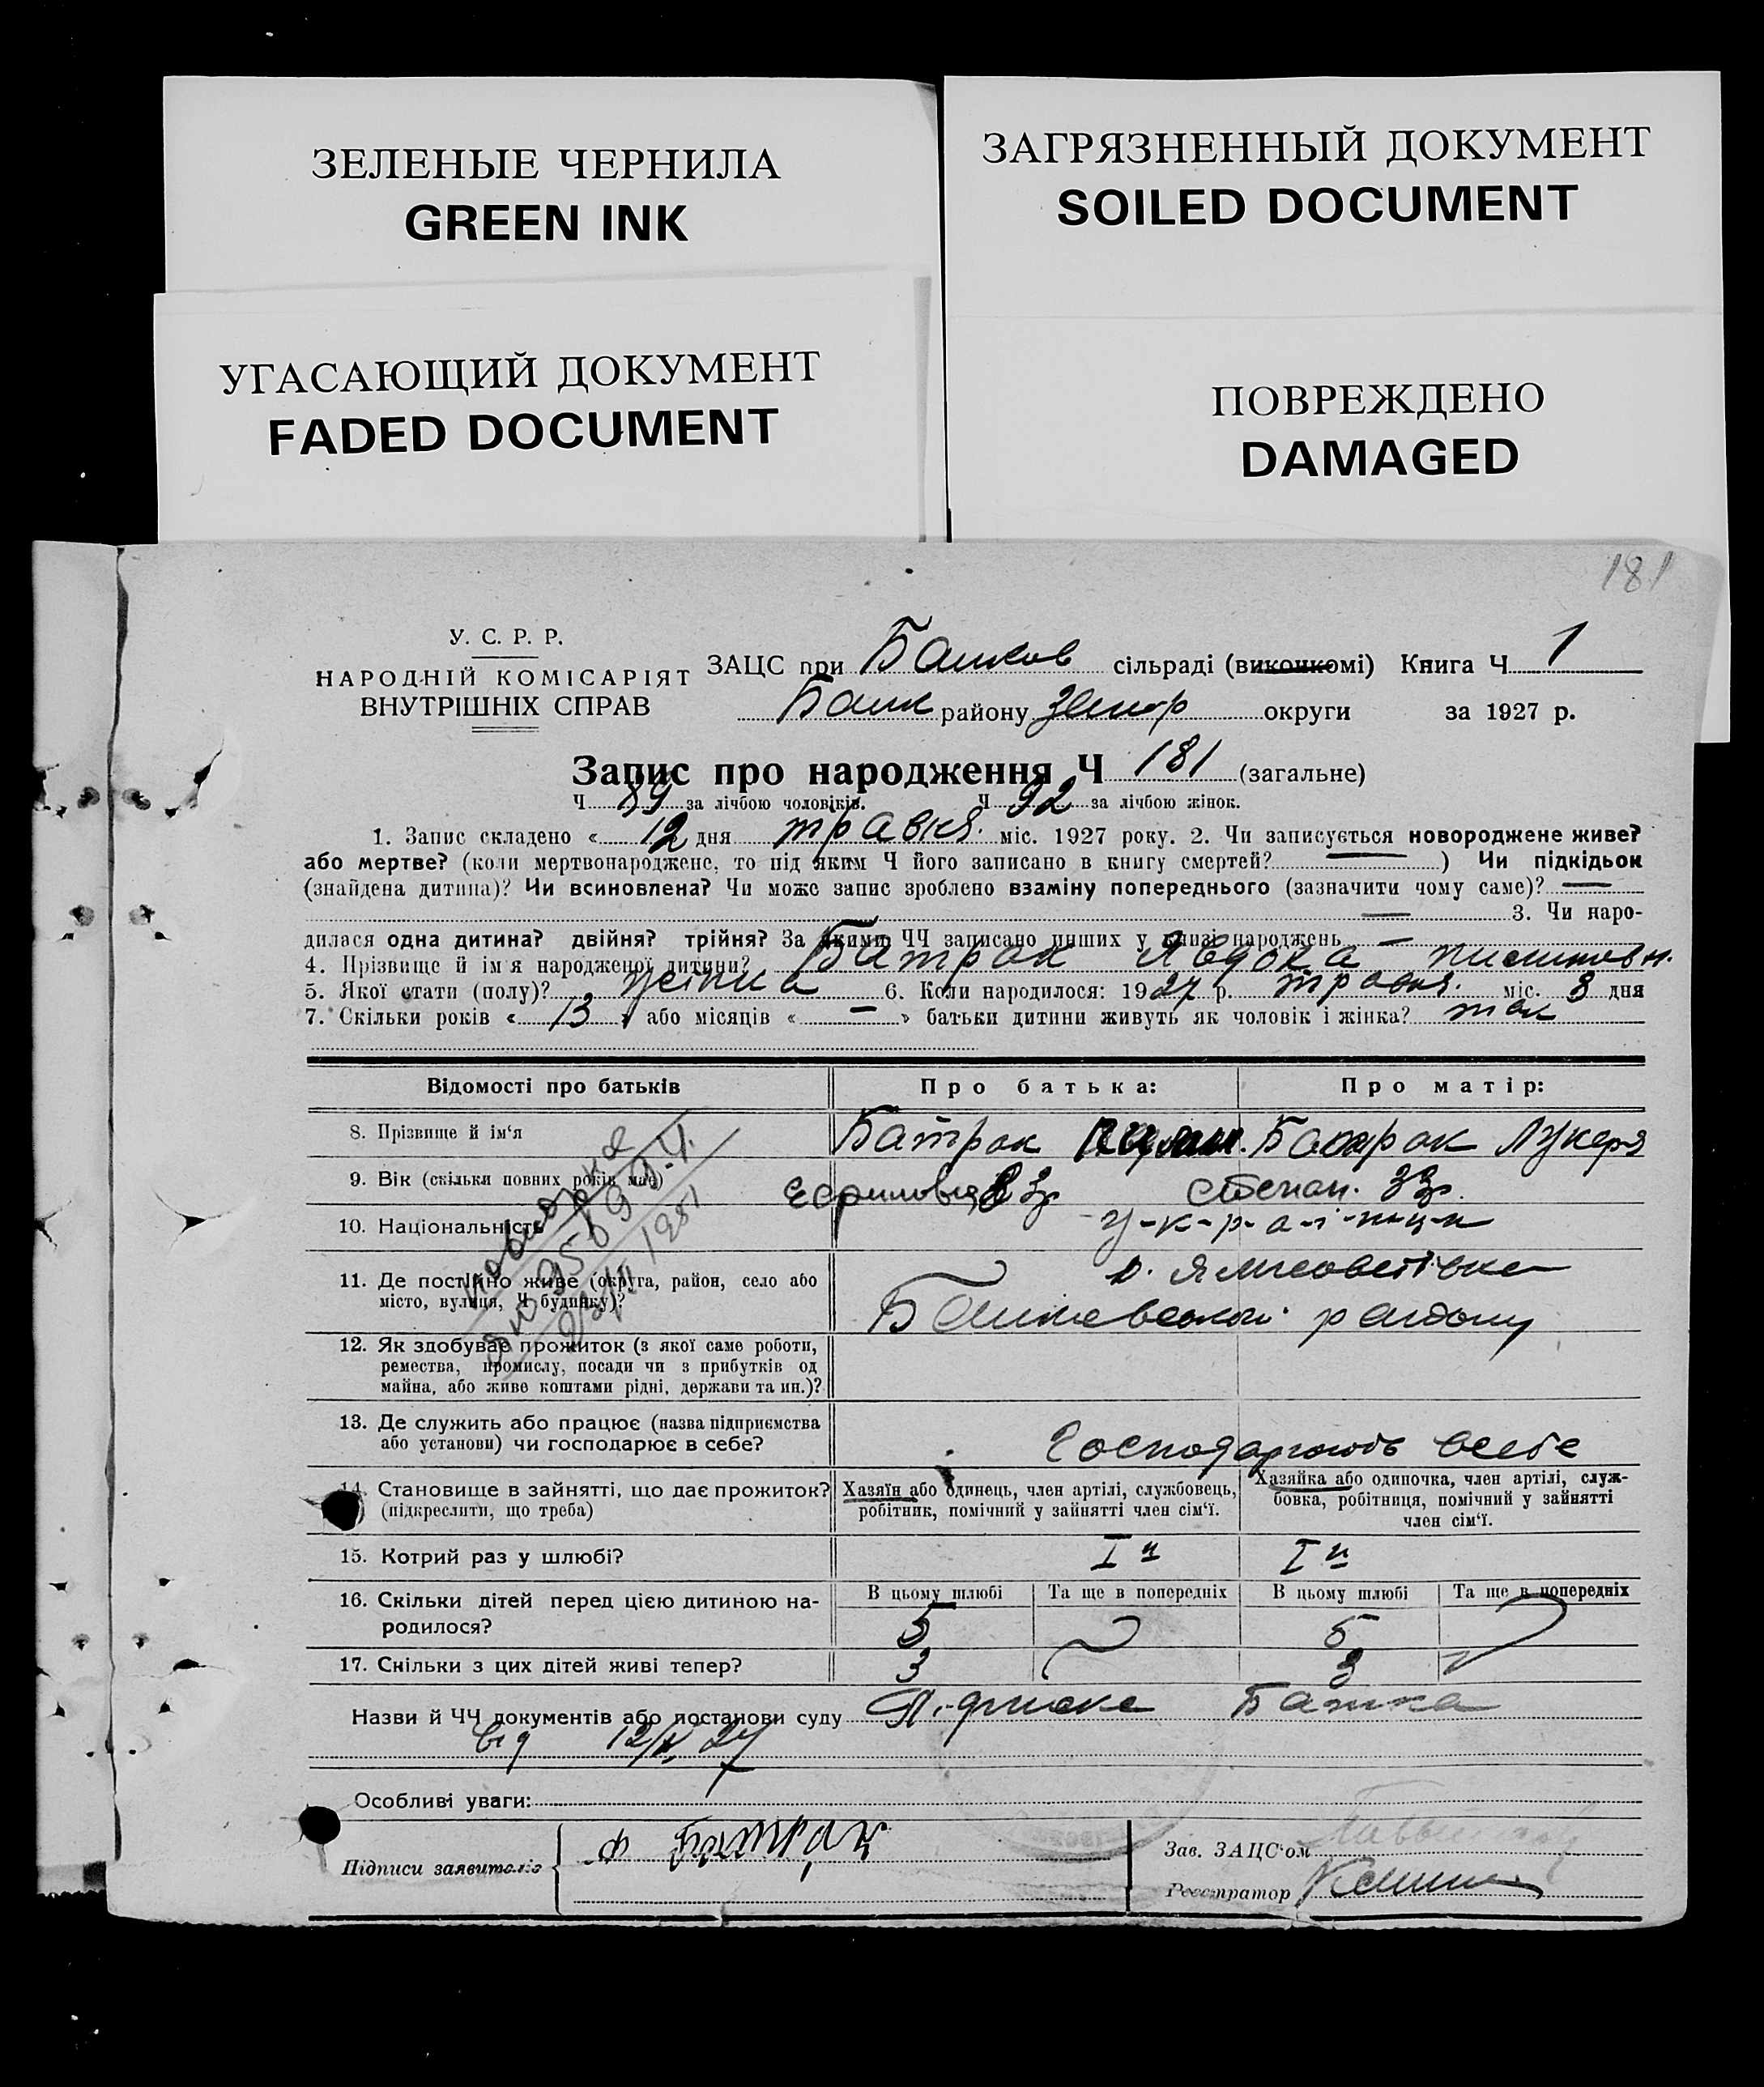 ЗЕЛЕНЫЕ ЧЕРНИЛА
GREEN INK
ЗАГРЯЗНЕННЫЙ ДОКУМЕНТ
SOILED DOCUMENT
УГАСАЮЩИЙ ДОКУМЕНТ
FADED DOCUMENT
ПОВРЕЖДЕНО
DAMAGED
181
У. С. Р. Р.
НАРОДНІЙ КОМІСАРІЯТ
ВНУТРІШНІХ СПРАВ
ЗАЦС при сільраді (виконкомі) Книга Ч 1
району округи за 1927 р.
Запис про народження Ч 181 (загальне)
Ч 89 за лічбою чоловіків. Ч 92 за лічбою жінок.
1. Запис складено « 12 дня травня міс. 1927 року. 2. Чи записується новороджене живе?
або мертве? (коли мертвонароджене, то під яким Ч його записано в книгу смертей? — ) Чи підкідьок
(знайдена дитина)? Чи всиновлена? Чи може запис зроблено взаміну попереднього (зазначити чому саме)? —
— 3. Чи наро-
дилася одна дитина? двійня? трійня? За якими ЧЧ записано инших у книзі народжень —
4. Прізвище й ім'я народженої дитини? Батрак Явдоха
5. Якої стати (полу)? жіноча 6. Коли народилося: 1927 р. травня міс. 8 дня
7. Скільки років « 13 » або місяців « — » батьки дитини живуть як чоловік і жінка? так
Відомості про батьків Про батька: Про матір:
8. Прізвище й ім'я Батрак Батрак Лукеря
9. Вік (скільки повних років має) Степан. 33р.
10. Національність у-к-р-а-ї-н-ц-и
11. Де постійно живе (округа, район, село або
місто, вулиця, Ч будинку)? району
12. Як здобуває прожиток (з якої саме роботи,
ремества, промислу, посади чи з прибутків од
майна, або живе коштами рідні, держави та ин.)?
13. Де служить або працює (назва підприємства
або установи) чи господарює в себе? Господарюють всебе
14. Становище в зайнятті, що дає прожиток? Хазяїн або одинець, член артілі, службовець, Хазяйка або одиночка, член артілі, служ-
(підкреслити, що треба) робітник, помічний у зайнятті член сім'ї. бовка, робітниця, помічний у зайнятті
член сім'ї.
15. Котрий раз у шлюбі? І й І й
16. Скільки дітей перед цією дитиною на- В цьому шлюбі Та ще в попередніх В цьому шлюбі Та ще в попередніх
родилося? 5 5
17. Скільки з цих дітей живі тепер? 3 3
Назви й ЧЧ документів або постанови суду Підписка Батька
від 12/V 27
Особливі уваги:
Підписи заявителів Батрак
Зав. ЗАЦС'ом
Реєстратор